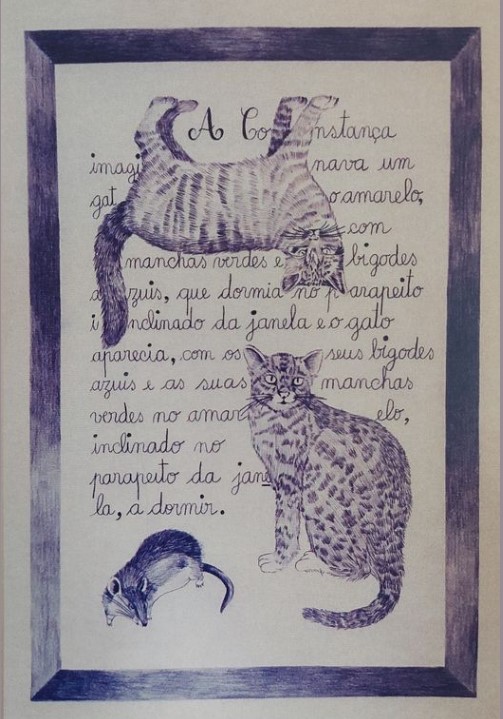 A Constança
imaginava um
gato amarelo,
com
manchas verdes e bigodes
azuis, que dormia no parapeito
inclinado da janela e o gato
aparecia, com os seus bigodes
azuis e as suas manchas
verdes no amarelo,
inclinado no
parapeito da jane
la, a dormir.